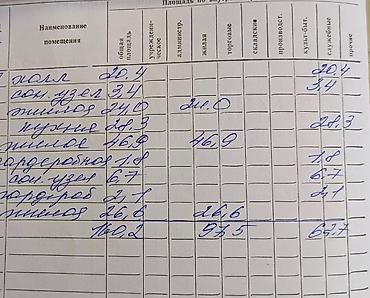 Площадь по внутр
Наименование помещения общая площадь учрежденческое администр. жилая торговые складских производст. культ-быт. служебные прочие
холл 20,4 20,4
сан. узел 3,4 3,4
жилая 24,0 24.0
кухня 28.3 28.3
жилое 46,9 46,9
гардеробная 1.8 1,8
сан. узел 6.7 6.7
гардероб 2,1 2,1
жилая 26,6 26,6
160,2 97,5 62,7